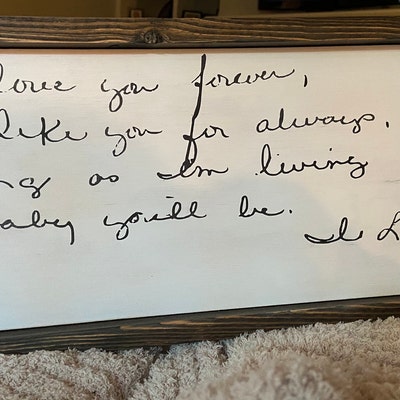 love you forever,
like you for always,
ng as I'm living
aby you'll be.
I L